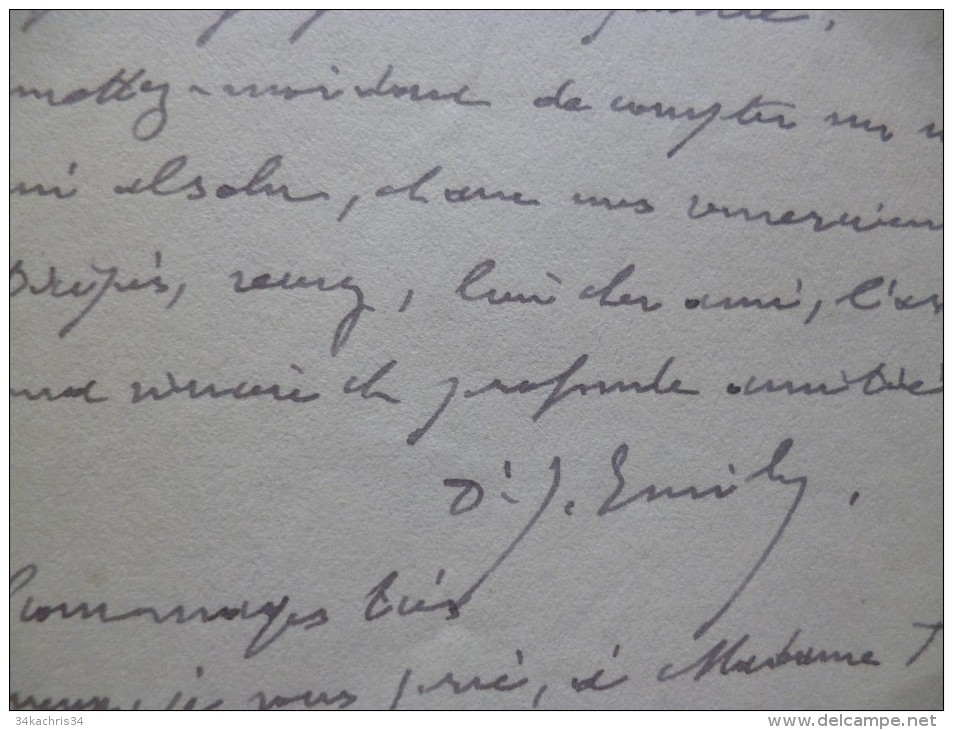 mettez-moi donc de compter sur
absolu, et avec mes remerciem
cipés, recevez, bien cher ami, l'as
ma sincère et profonde amitié
Dr J. Emily.
hommages très
ueux, je vous prie, à Madame T
34kachris34
www.delcampe.net